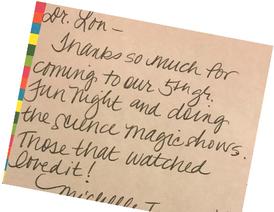 Dr. Lon –
Thanks so much for
coming to our 5th gr.
Fun Night and doing
the science magic shows.
Those that watched
loved it!
Michelle T